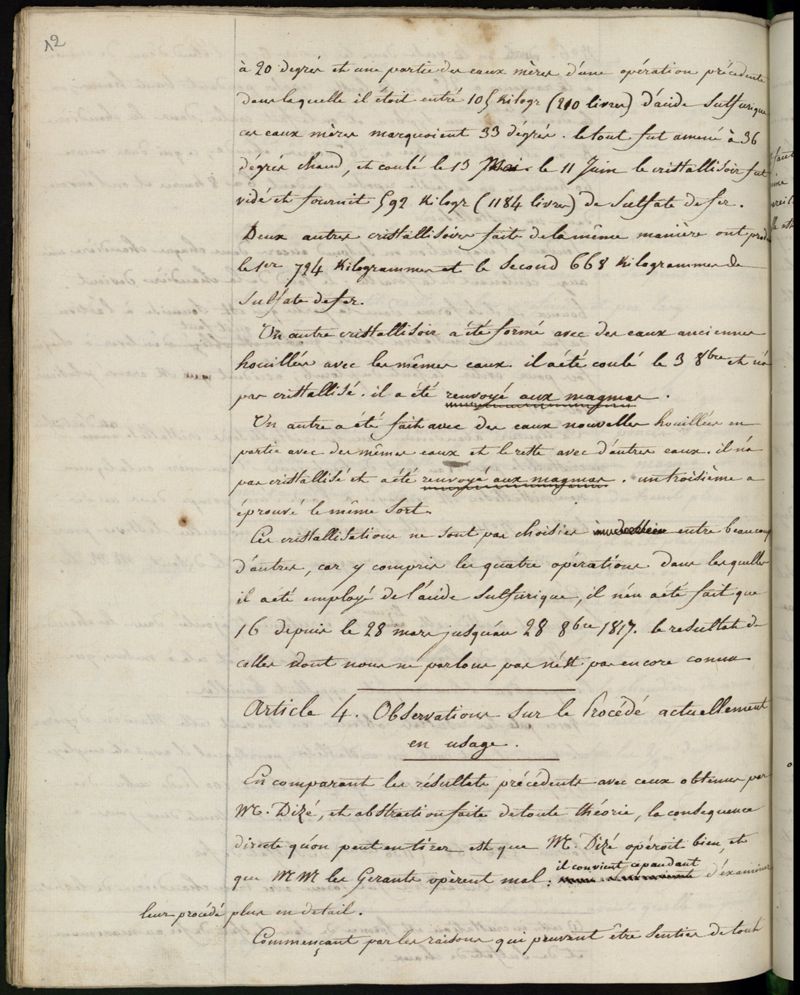 12
à 20 degrés et une partie des eaux mères d'une opération précédente
dans laquelle il étoit entré 105 Kilogr (210 livres) d'acide Sulfurique
ces eaux mères marquoient 33 dégrés. le tout fut amené à 36
dégrés chaud, et coulé le 13 Mai. le 11 Juin le cristallisoir fut
vidé et fournit 592 Kilogr (1184 livres) de Sulfate de fer.
Deux autres cristallisoirs faits de la même manière ont produit
le 1er 724 Kilogrammes et le Second 668 Kilogrammes de
Sulfate de fer.
Un autre cristallisoir a été formé avec des eaux anciennes
houillées avec les mêmes eaux. il a été coulé le 3 8bre et n'a
pas cristallisé. il a été renvoyé aux magmas.
Un autre a été fait avec des eaux nouvelles houillées en
partie avec des mêmes eaux et le reste avec d'autres eaux. il n'a
pas cristallisé et a été renvoyé aux magmas. un troisième a
éprouvé le même sort.
Ces cristallisations ne sont pas choisies entre beaucoup
d'autres, car y compris les quatre opérations dans lesquelles
il a été employé de l'acide Sulfurique, il n'en a été fait que
16 depuis le 28 mars jusqu'au 28 8bre 1817. le resultat de
celles dont nous ne parlons pas n'est pas encore connu
Article 4. Observations sur le Procédé actuellement
en usage.
En comparant les résultats précédents avec ceux obtenus par
M. Dizé, et abstraction faite de toute théorie, la consequence
directe qu'on peut en tirer est que M. Dizé opéroit bien, et
que MM les Gerants opèrent mal; il convient cependant d'examiner
leur procédé plus en detail.
Commençant par les raisons qui peuvent être senties de tout